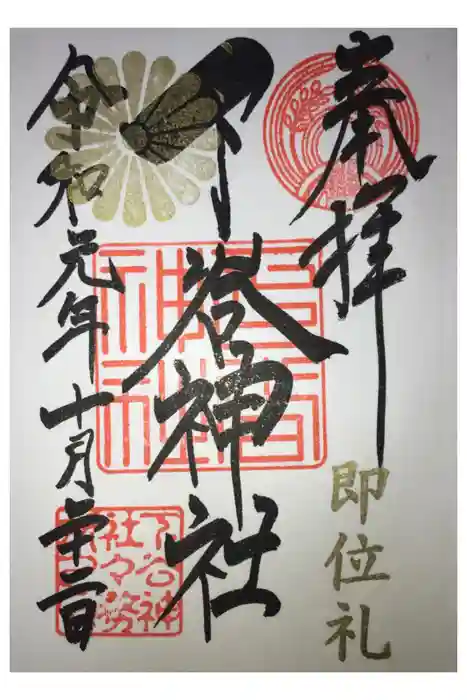 奉拝
即位礼
下谷神社
令和元年十月廿二日
下谷神
社々務